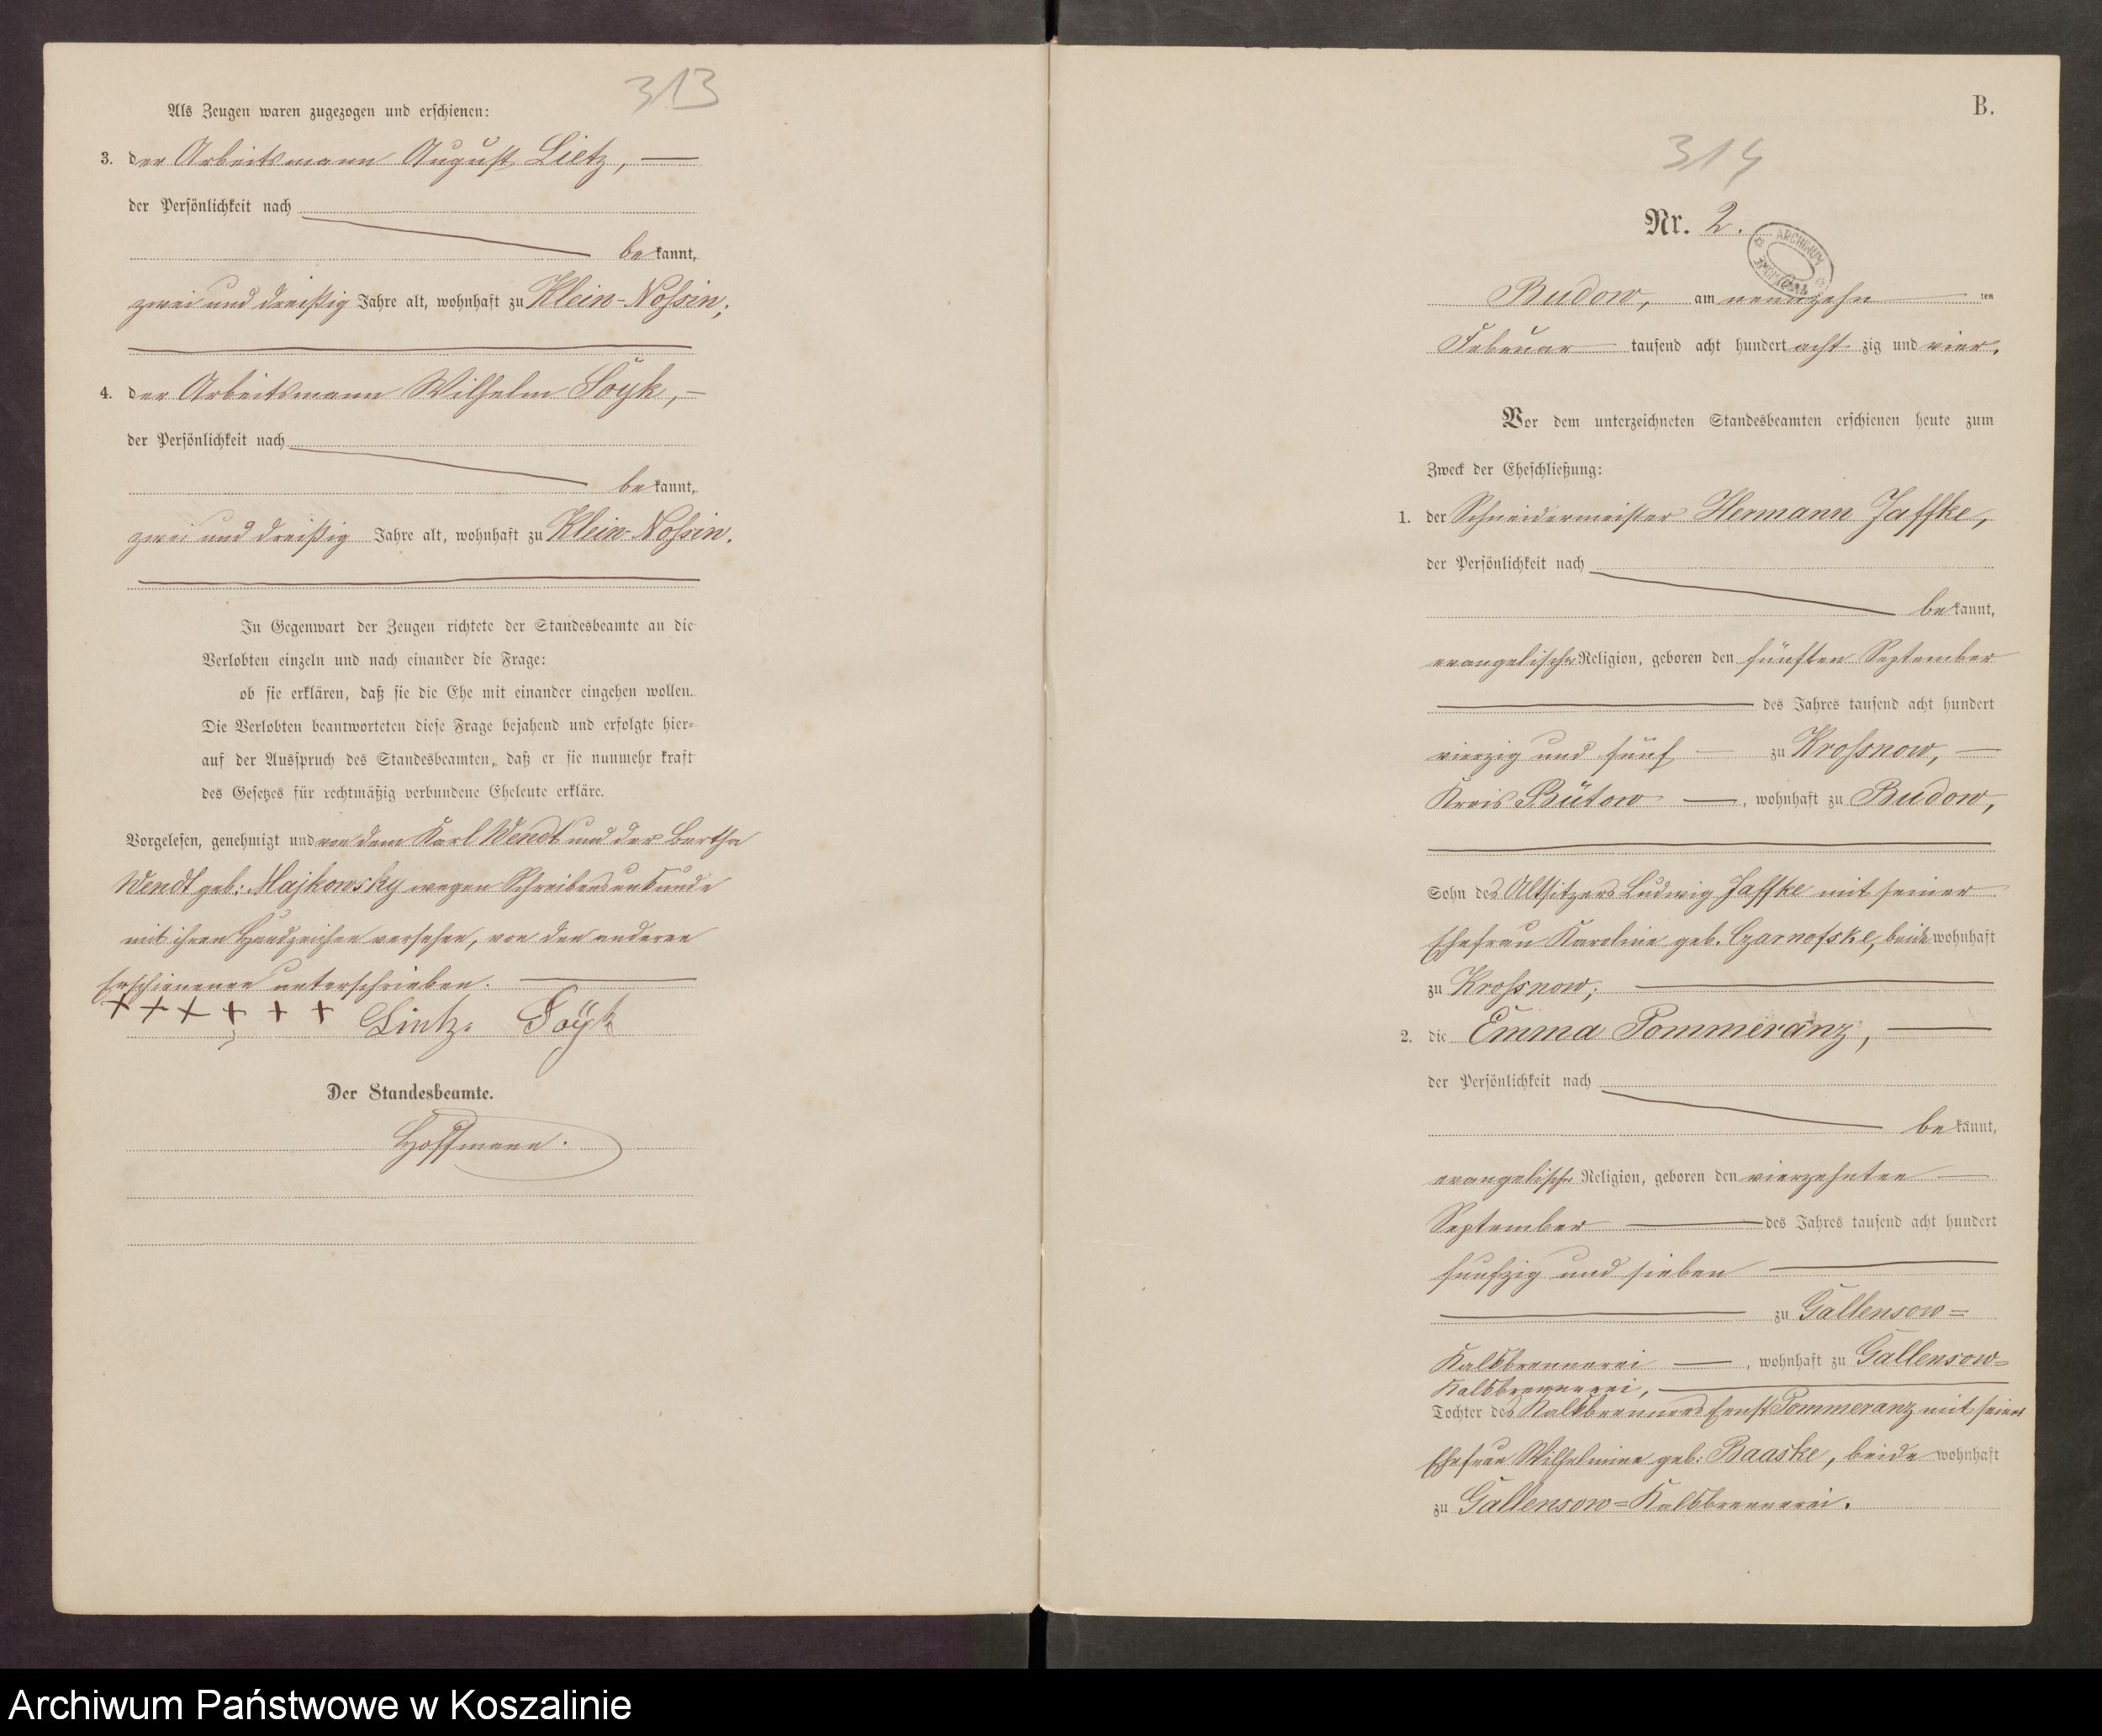 313
Als Zeugen waren zugezogen und erschienen:
3. der Arbeitsmann August Lietz, —
der Persönlichkeit nach
bekannt,
zwei und dreißig Jahre alt, wohnhaft zu Klein-Nossin;
4. der Arbeitsmann Wilhelm Soyk, —
der Persönlichkeit nach
bekannt,
zwei und dreißig Jahre alt, wohnhaft zu Klein-Nossin.
In Gegenwart der Zeugen richtete der Standesbeamte an die
Verlobten einzeln und nach einander die Frage:
ob sie erklären, daß sie die Ehe mit einander eingehen wollen.
Die Verlobten beantworteten diese Frage bejahend und erfolgte hier=
auf der Ausspruch des Standesbeamten, daß er sie nunmehr kraft
des Gesetzes für rechtmäßig verbundene Eheleute erkläre.
Vorgelesen, genehmigt und von dem Karl Wendt und der Bertha
Wendt geb: Majkowsky wegen Schreibensunkunde
mit ihren Handzeichen versehen, von den anderen
Erschienenen unterschrieben. —
+ + + + + + Lietz. Soyk
Der Standesbeamte.
Hoffmann.
B.
314
Nr. 2.
ARCHIWUM
Budow, am neunzehn — ten
Februar — tausend acht hundert acht zig und vier.
Vor dem unterzeichneten Standesbeamten erschienen heute zum
Zweck der Eheschließung:
1. der Schneidermeister Hermann Jaffke,
der Persönlichkeit nach
bekannt,
evangelischer Religion, geboren den fünften September
— des Jahres tausend acht hundert
vierzig und fünf — zu Krossnow, —
Kreis Bütow —, wohnhaft zu Budow,
Sohn des Altsitzers Ludwig Jaffke mit seiner
Ehefrau Karoline geb. Czarnofske, beide wohnhaft
zu Krossnow; —
2. die Emma Pommeranz, —
der Persönlichkeit nach
bekannt,
evangelischer Religion, geboren den vierzehnten —
September — des Jahres tausend acht hundert
funfzig und sieben —
— zu Gallensow=
Kalkbrennerei —, wohnhaft zu Gallensow=
Kalkbrennerei, —
Tochter des Kalkbrenners Ernst Pommeranz mit seiner
Ehefrau Wilhelmine geb: Baaske, beide wohnhaft
zu Gallensow=Kalkbrennerei.
Archiwum Państwowe w Koszalinie